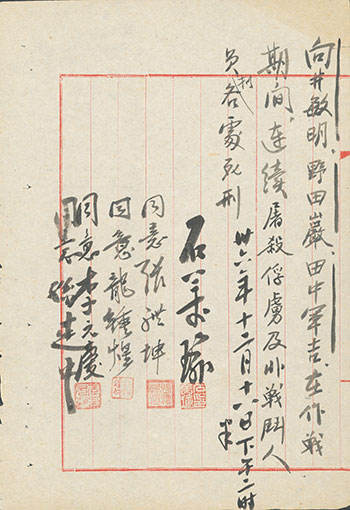 向井敏明、野田巖、田中軍吉、在作戰
期间、連續屠殺俘虜及非戰鬥人
員各處死刑
卅六年十二月十八日下午二时半
石美瑜
同意張體坤
同意龍鍾煌
同意李元慶
同意孫建中